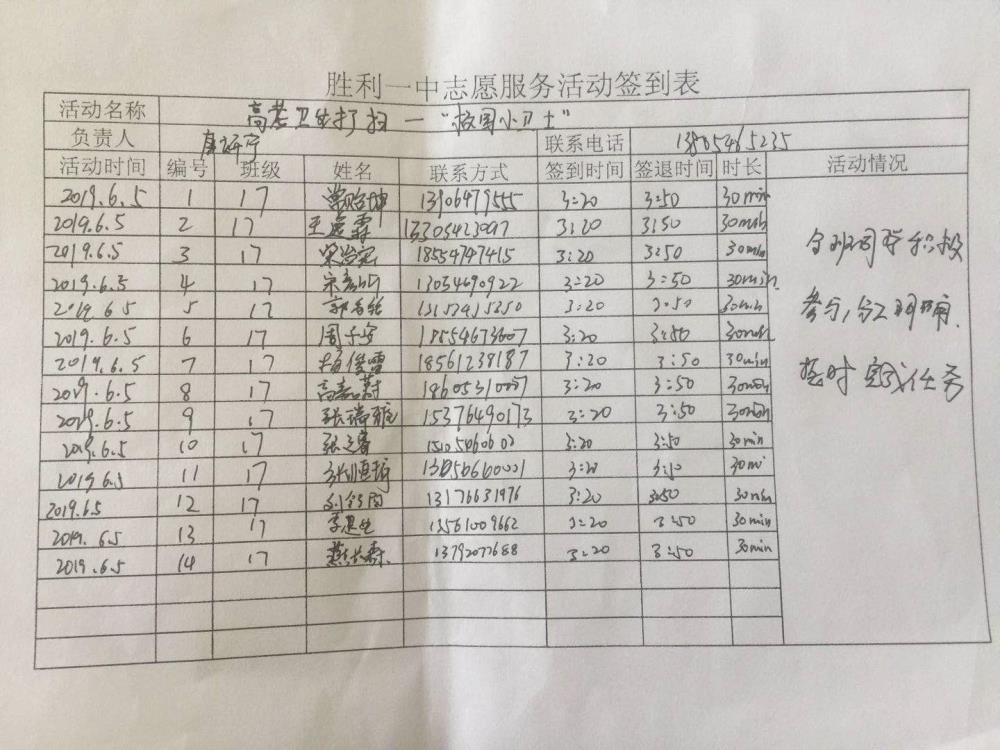 胜利一中志愿服务活动签到表
活动名称 高考卫生打扫—“校园小卫士”
负责人 联系电话 13805465235
活动时间 编号 班级 姓名 联系方式 签到时间 签退时间 时长 活动情况
2019.6.5 1 17 13906479555 3:20 3:50 30min
2019.6.5 2 17 王逸霖 3:20 3:50 30min
2019.6.5 3 17 18554747415 3:20 3:50 30min
2019.6.5 4 17 13054690922 3:20 3:50 30min
2019.6.5 5 17 3:20 3:50 30min
2019.6.5 6 17 周子安 18554673607 3:20 3:50 30min
2019.6.5 7 17 18561238187 3:20 3:50 30min
2019.6.5 8 17 高嘉蔚 3:20 3:50 30min
2019.6.5 9 17 15376490173 3:20 3:50 30min
2019.6.5 10 17 3:20 3:50 30min
2019.6.5 11 17 3:20
2019.6.5 12 17 13176631976 3:20 3:50 30min
2019.6.5 13 17 3:20 3:50 30min
2019.6.5 14 17 13792077688 3:20 3:50 30min
全班同学积极
参与,分工明确,
按时完成任务